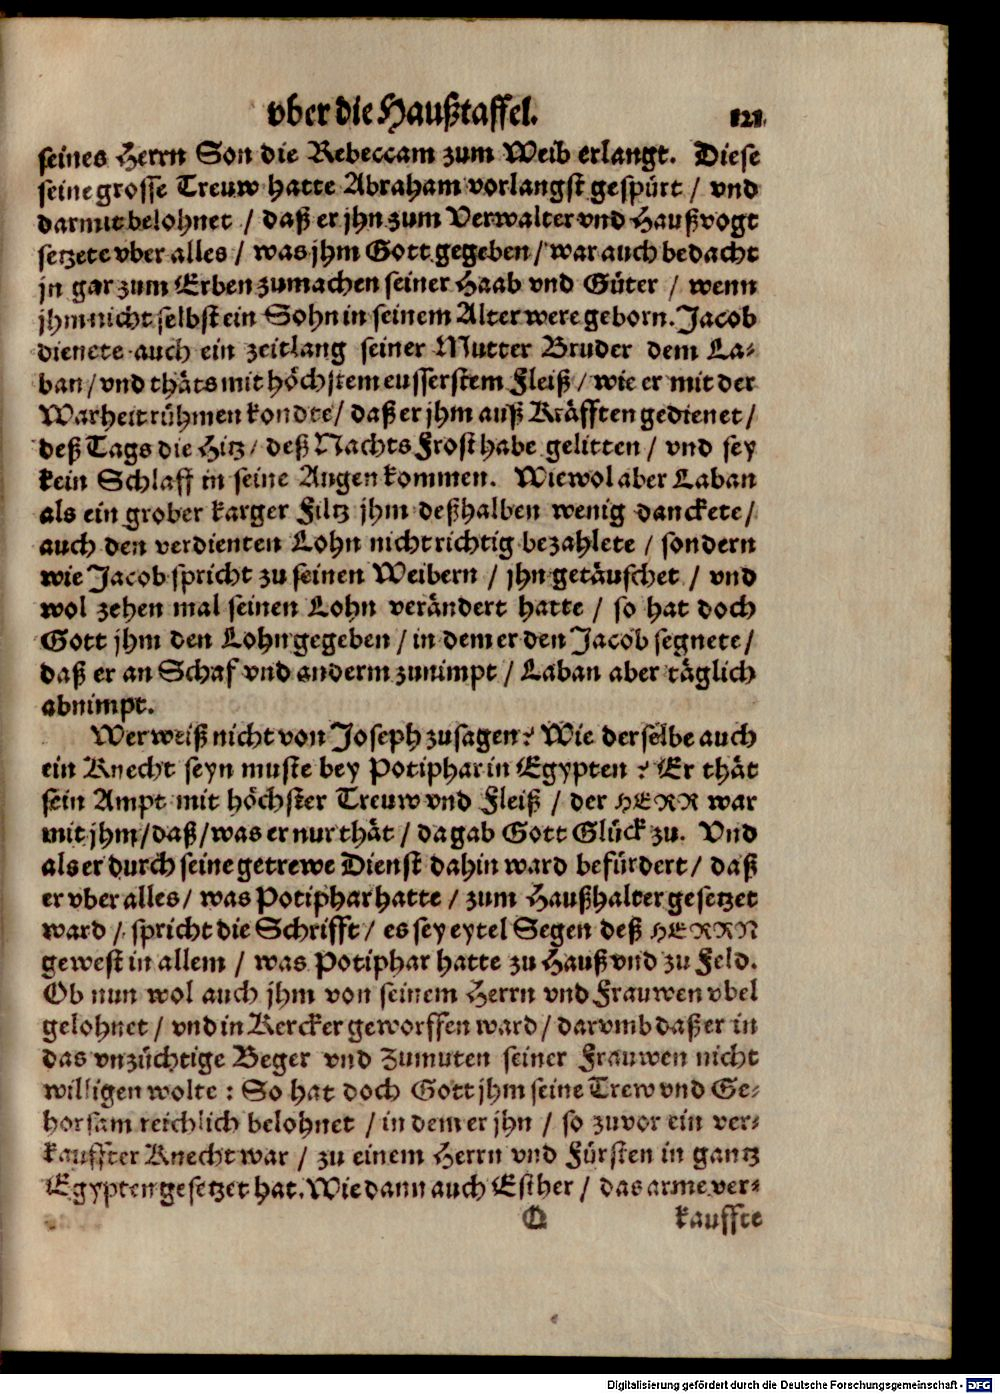 vber die Haußtaffel. 121
seines Herrn Son die Rebeccam zum Weib erlangt. Diese
seine grosse Treuw hatte Abraham vorlangst gespürt / vnd
darmit belohnet / daß er jhn zum Verwalter vnd Haußvogt
setzete vber alles / was jhm Gott gegeben / war auch bedacht
jn gar zum Erben zumachen seiner Haab vnd Güter / wenn
jhm nicht selbst ein Sohn in seinem Alter were geborn. Jacob
dienete auch ein zeitlang seiner Mutter Bruder dem La-
ban / vnd thäts mit höchstem eusserstem Fleiß / wie er mit der
Warheit rühmen kondte / daß er jhm auß Kräfften gedienet /
deß Tags die Hitz / deß Nachts Frost habe gelitten / vnd sey
kein Schlaff in seine Augen kommen. Wiewol aber Laban
als ein grober karger Filtz jhm deßhalben wenig danckete /
auch den verdienten Lohn nicht richtig bezahlete / sondern
wie Jacob spricht zu seinen Weibern / jhn getäuschet / vnd
wol zehen mal seinen Lohn verändert hatte / so hat doch
Gott jhm den Lohn gegeben / in dem er den Jacob segnete /
daß er an Schaf vnd anderm zunimpt / Laban aber täglich
abnimpt.
Wer weiß nicht von Joseph zusagen? Wie derselbe auch
ein Knecht seyn muste bey Potiphar in Egypten? Er thät
sein Ampt mit höchster Treuw vnd Fleiß / der HERR war
mit jhm / daß / was er nur thät / da gab Gott Glück zu. Vnd
als er durch seine getrewe Dienst dahin ward befürdert / daß
er vber alles / was Potiphar hatte / zum Haußhalter gesetzet
ward / spricht die Schrifft / es sey eytel Segen deß HERRN
gewest in allem / was Potiphar hatte zu Hauß vnd zu Feld.
Ob nun wol auch jhm von seinem Herrn vnd Frauwen vbel
gelohnet / vnd in Kercker geworffen ward / darvmb daß er in
das vnzüchtige Beger vnd Zumuten seiner Frauwen nicht
willigen wolte : So hat doch Gott jhm seine Trew vnd Ge-
horsam reichlich belohnet / in dem er jhn / so zuvor ein ver-
kauffter Knecht war / zu einem Herrn vnd Fürsten in gantz
Egypten gesetzet hat. Wie dann auch Esther / das arme ver-
Q kauffte
Digitalisierung gefördert durch die Deutsche Forschungsgemeinschaft - DFG